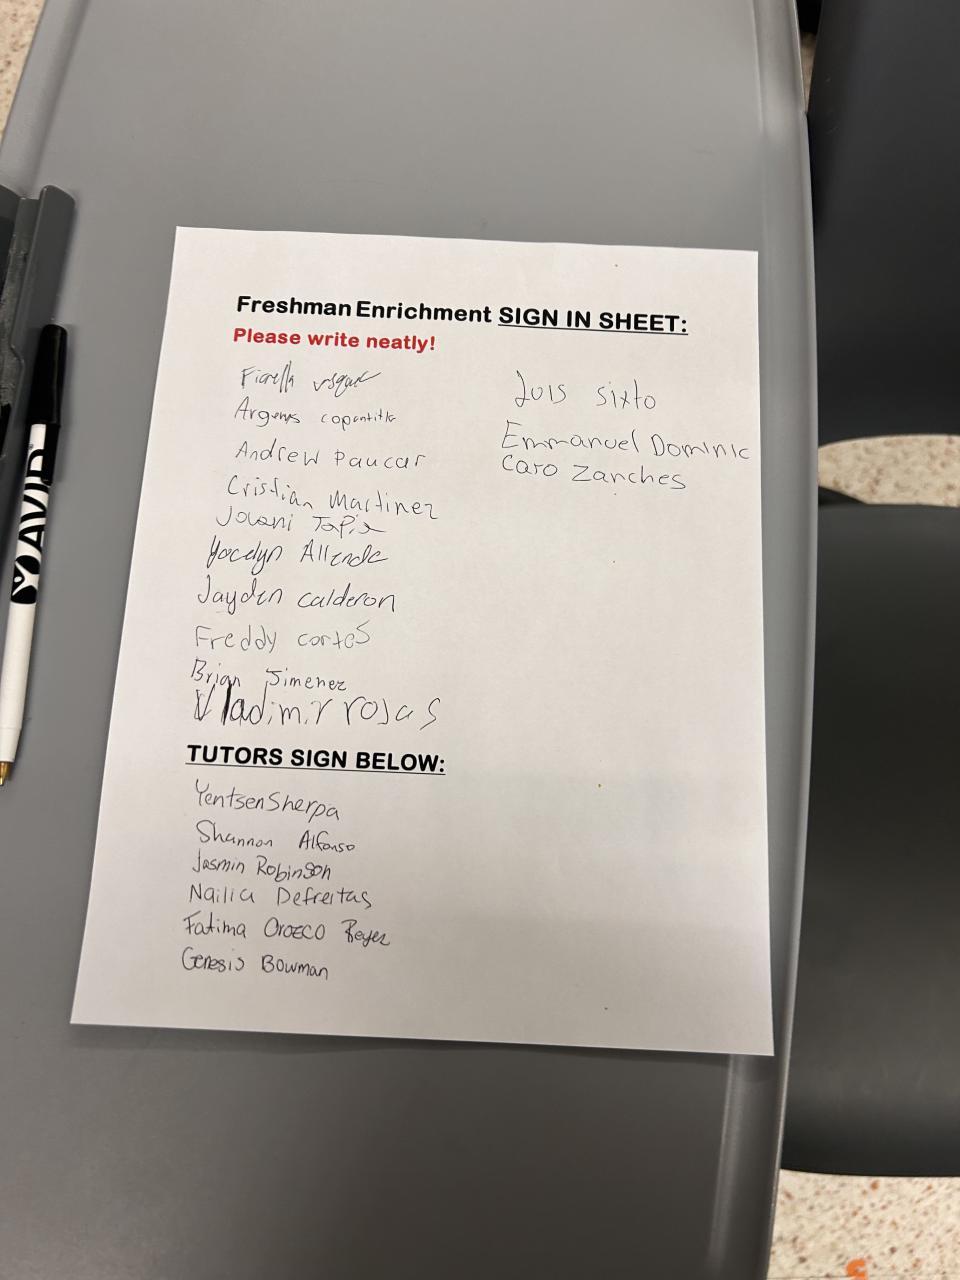 Freshman Enrichment SIGN IN SHEET:
Please write neatly!
Fiorella
Argenis
Andrew Paucar
Cristian Martinez
Jovani Tapia
Yocelyn Allende
Jayden calderon
Freddy cortes
Brian Jimenez
Vladimir rojas
Luis sixto
Emmanuel Dominic
Caro Zanches
TUTORS SIGN BELOW:
Yentsen Sherpa
Shannon Alfonso
Jasmin Robinson
Nailia Defreitas
Fatima Orozco Reyes
Genesis Bowman
AVID